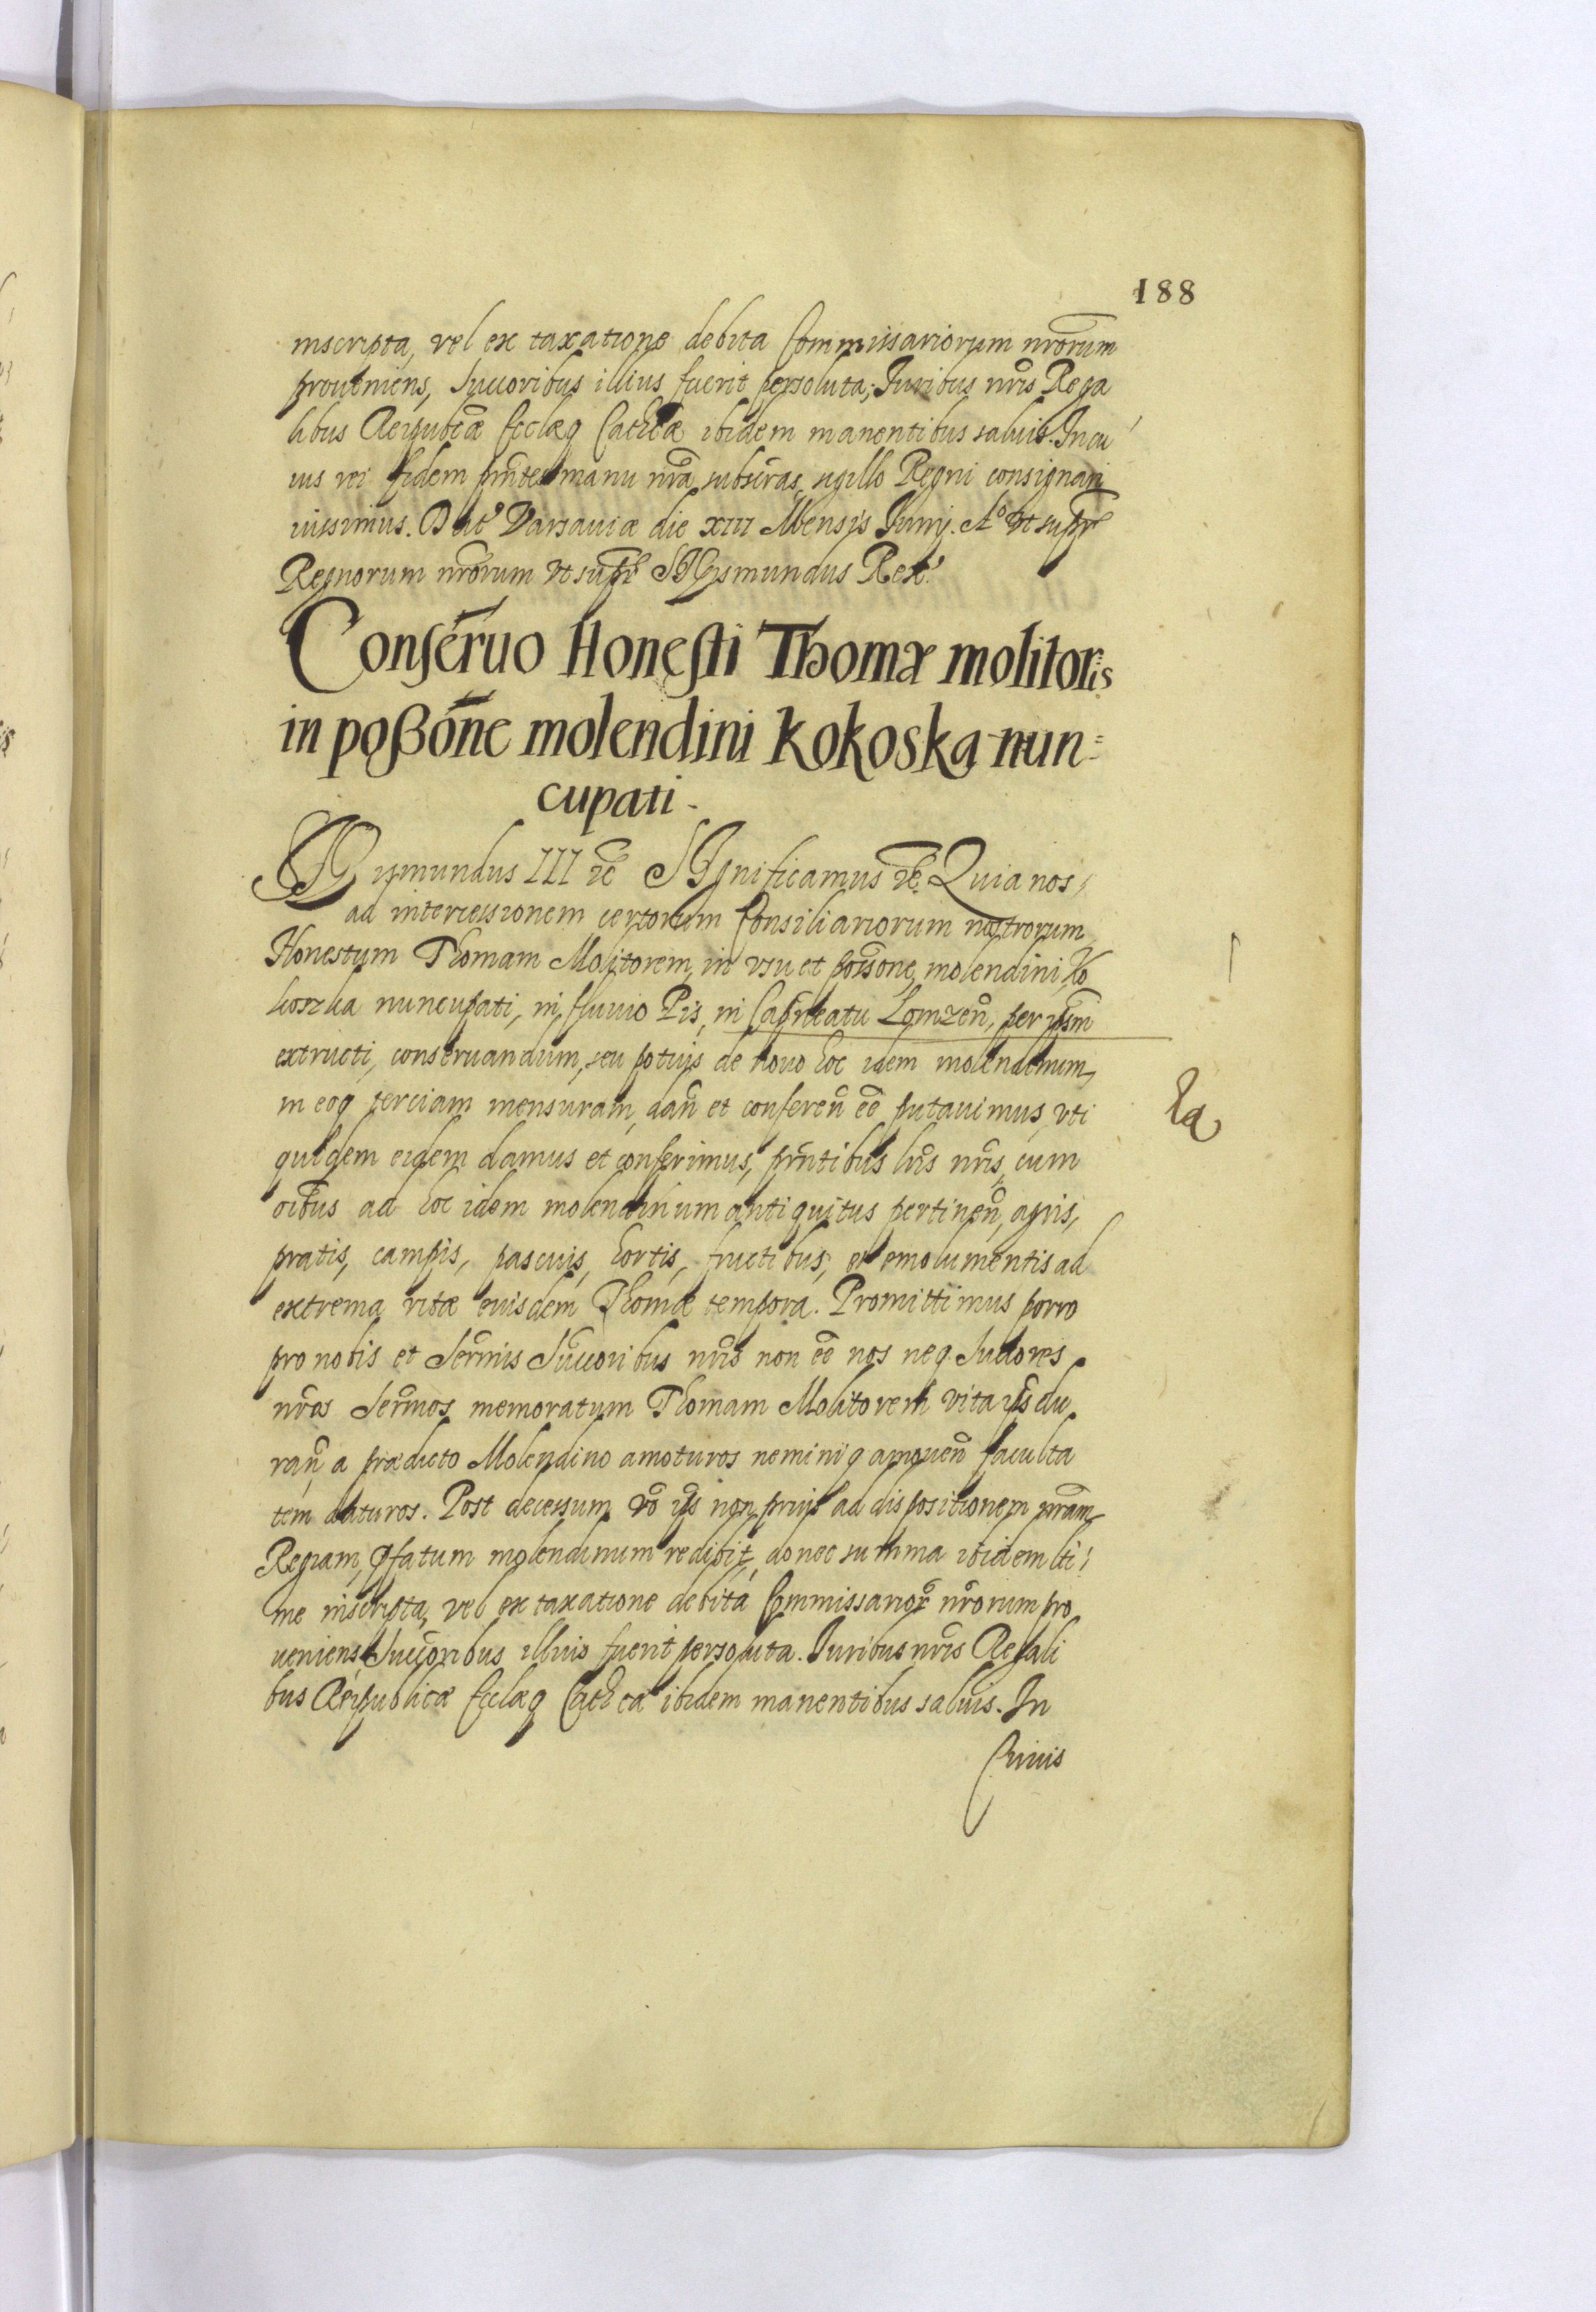 188
inscripta, vel ex taxatione debita Commissariorum nrorum
proueniens, Succoribus illius fuerit persoluta; Iuribus nris Rega
libus Reipubcæ Ecclæq Cathcæ ibidem manentibus saluis. In cu
ius rei fidem pntes manu nra subscras, sigillo Regni consignari
iussimus. Dat Varsauiæ die XIII Mensis Iunij. Ao vt supr
Regnorum nrorum vt supr SIgismundus Rex.
Conseruo Honesti Thomæ molitoris
in poßone molendini Kokoska nun=
cupati.
SIGismundus III etc SIgnificamus etc Quia nos
ad intercessionem certorum Consiliariorum nostrorum
Honestum Thomam Molitorem, in vsu et possone molendini Ko
koszka nuncupati, in fluuio Pis, in Capneatu Lomzen, per ipsm
extructi, conseruandum, seu potius de nouo hoc idem molendinum,
in eoq terciam mensuram, dan et conferen ee putauimus, vti
quidem eidem damus et conferimus, pntibus lris nris, cum
oibus ad hoc idem molendinum antiquitus pertinen, agris,
pratis, campis, pascuis, hortis, fructibus, et emolumentis ad
extrema vitæ eiusdem Thomæ tempora. Promittimus porro
pro nobis et Sermis Succoribus nris non ee nos neq Succores
nros Sermos memoratum Thomam Molitorem vita ips du
ran a prædicto Molendino amoturos neminiq amouen faculta
tem daturos. Post decessum vo ips non prius ad dispositionem nram
Regiam, pfatum molendinum redibit, donec summa ibidem lti
me inscripta, vel ex taxatione debita Commissarior nrorum pro
ueniens Succoribus illius fuerit persoluta. Iuribus nris Regali
bus Reipublicæ Ecclæq Cathcæ ibidem manentibus saluis. In
Cuius